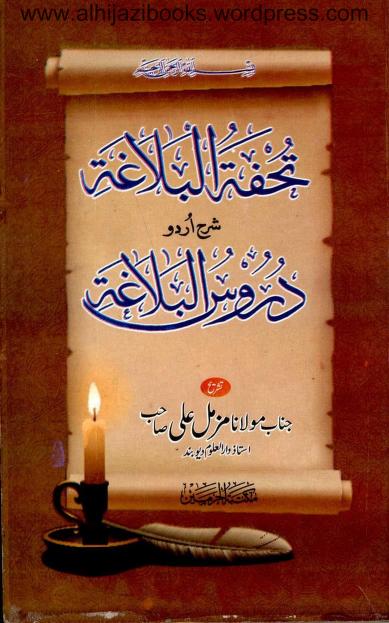 www.alhijazibooks.wordpress.com
بسم اللہ الرحمن الرحیم
تُحْفَةُ الْبَلَاغَة
شرح اُردو
دُرُوْسُ الْبَلَاغَة
تشریح
جناب مولانا مزمل علی صاحب
استاذ دارالعلوم دیوبند
مکتبۃ الحرمین